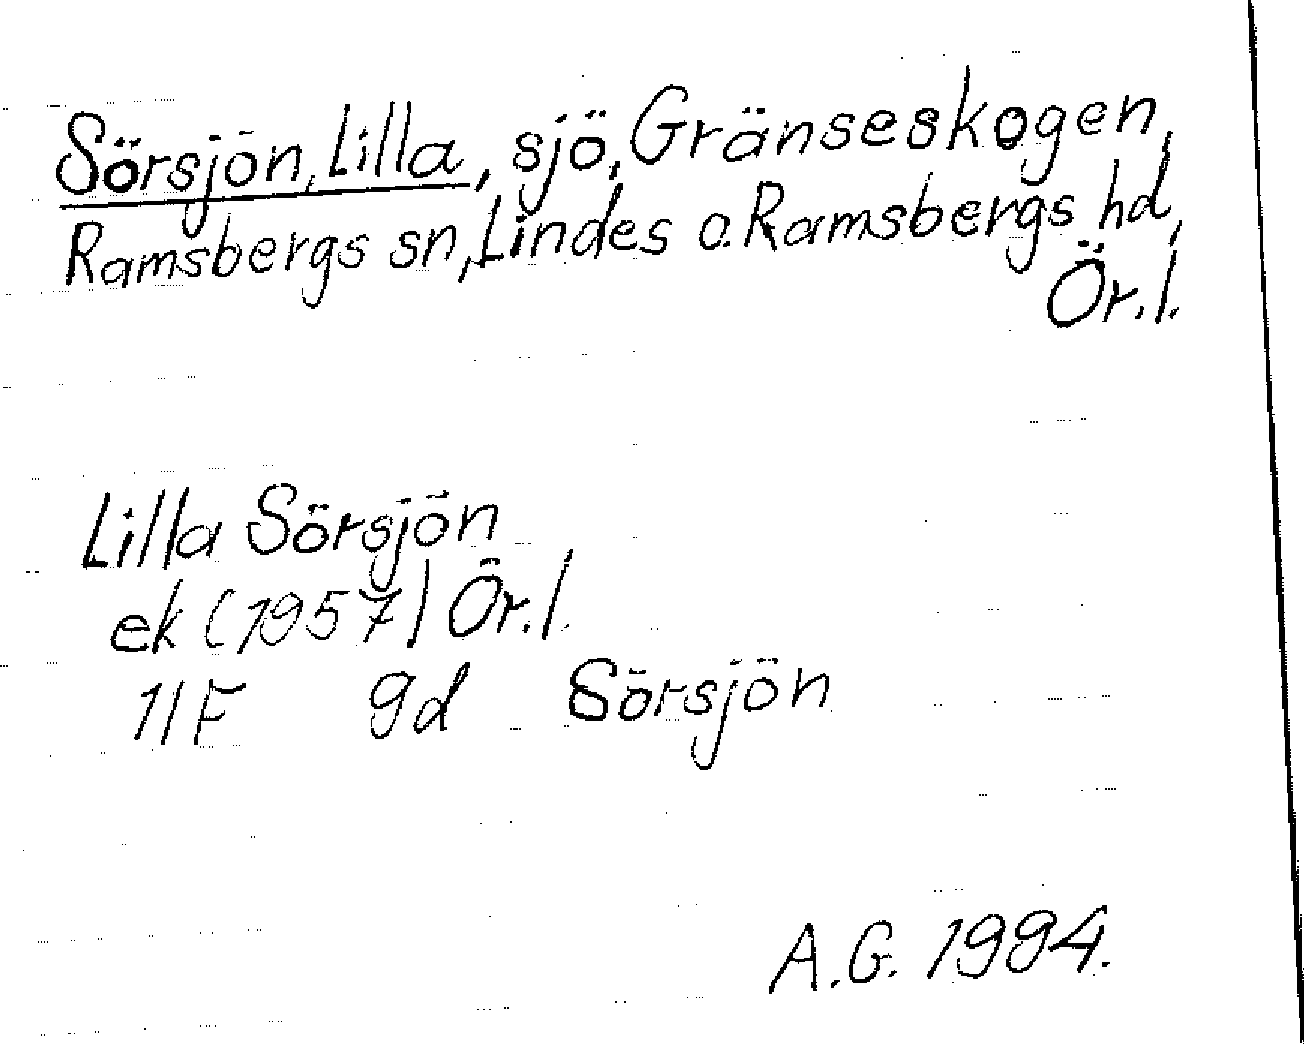 Sörsjön, Lilla, sjö, Gränseskogen,
Ramsbergs sn, Lindes o. Ramsbergs hd,
Ör. l.
Lilla Sörsjön
ek (1957) Ör. l.
11F gd Sörsjön
A.G. 1994.